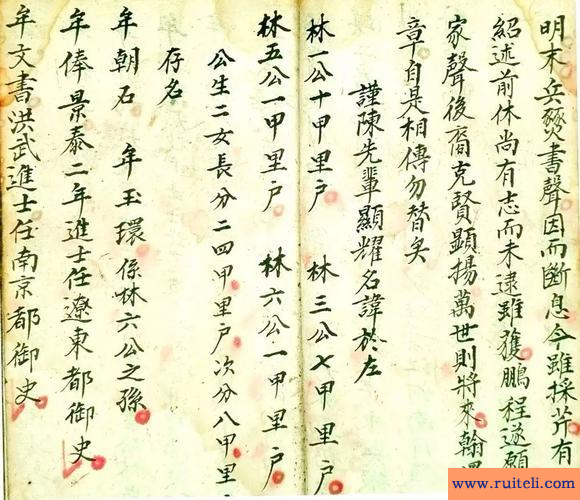 明末兵燹書聲因而斷息今雖採芹有
紹述前休尚有志而未逮雖獲鵬程遂願
家聲後裔克賢顯揚萬世則將來翰
章自是相傳勿替矣
謹陳先輩顯耀名諱於左
林一公十甲里戶 林三公七甲里戶
林五公一甲里戶 林六公一甲里戶
公生二女長分二四甲里戶次分八甲里
存名
牟朝石 牟玉環係林六公之孫
牟俸景泰二年進士任遼東都御史
牟文書洪武進士任南京都御史
www.ruiteli.com